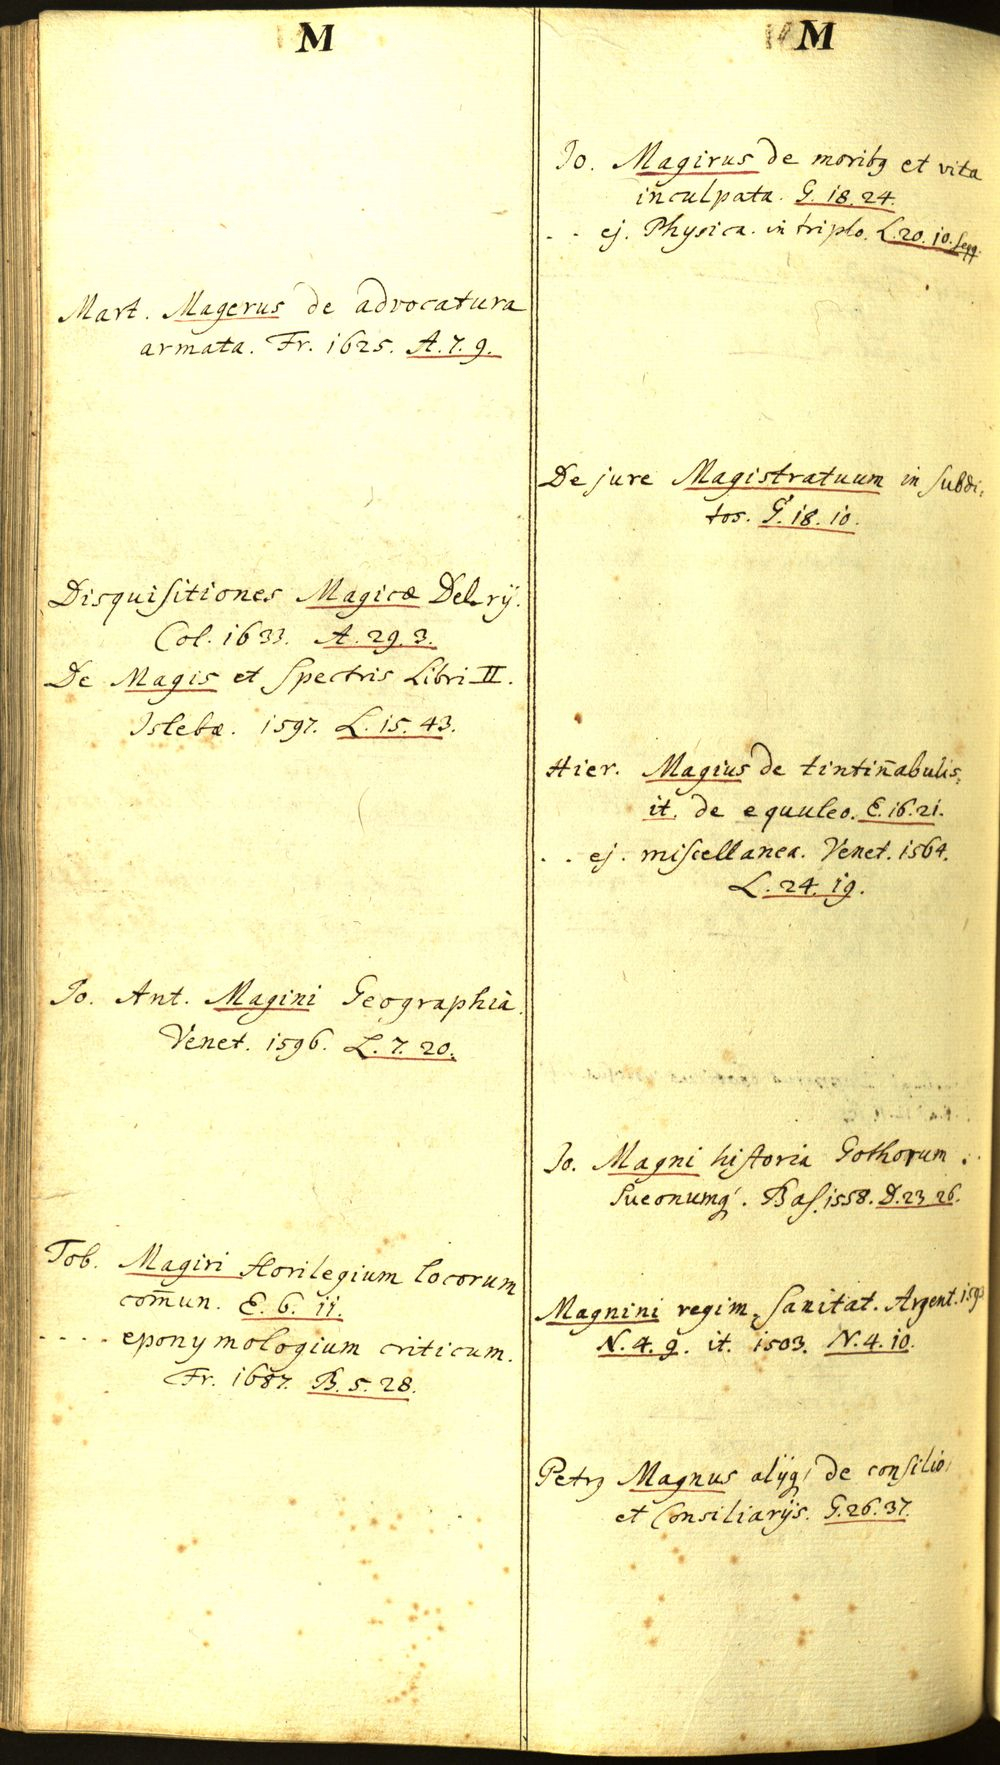 M
Mart. Magerus de advocatura
armata. Fr. 1625. A. 7. 9.
Disquisitiones Magicæ Delrij.
Col. 1633. A. 29. 3.
De Magis et Spectris Libri II.
Islebæ. 1597. L. 15. 43.
Jo. Ant. Magini Geographia.
Venet. 1596. L. 7. 20.
Tob. Magiri florilegium locorum
com̄un. E. 6. 11.
- - - - eponymologium criticum.
Fr. 1687. B. 5. 28.
M
Jo. Magirus de moribꝰ et vita
inculpata. G. 18. 24.
- - ej. Physica. in triplo. L. 20. 10. seqq.
De jure Magistratuum in subdi:
tos. G. 18. 10.
Hier. Magius de tintin̄abulis,
it. de equuleo. E. 16. 21.
- - ej. miscellanea. Venet. 1564.
L. 24. 19.
Jo. Magni historia Gothorum
Sueonumq́. Bas. 1558. D. 23. 26.
Magnini regim. sanitat. Argent.
N. 4. 9. it. 1503. N. 4. 10.
Petrꝰ Magnus alijq́ de consilio
et Consiliarijs. G. 26. 37.